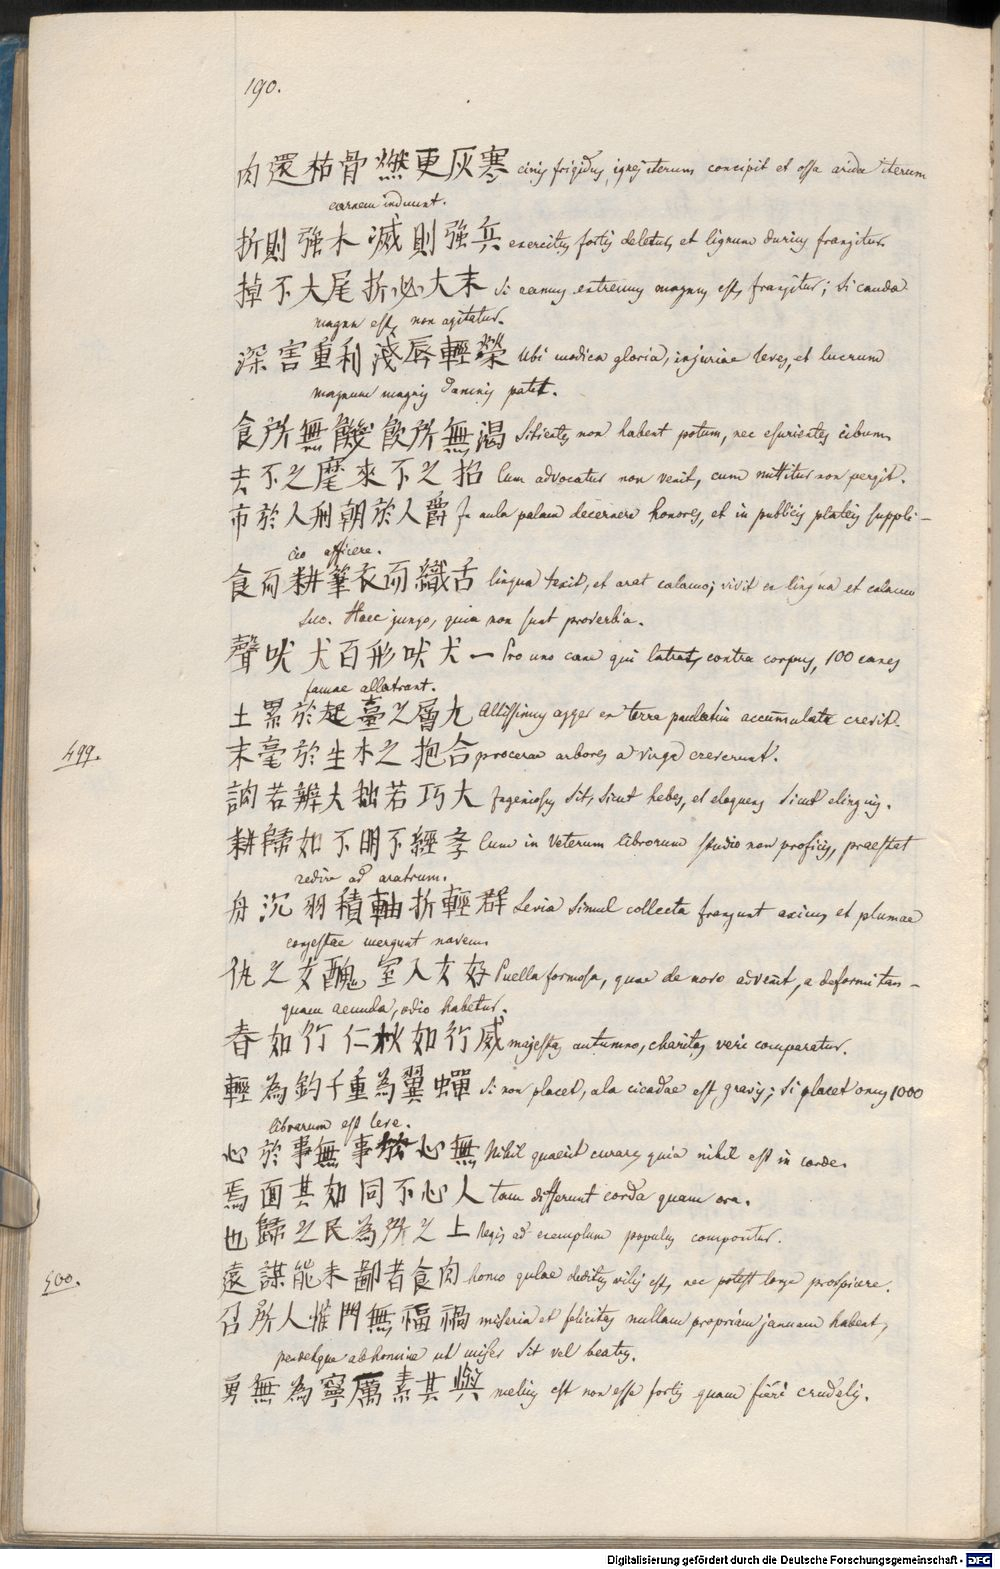 190.
肉還枯骨燃更灰寒 cinis frigidus, ignes iterum concipit et ossa arida iterum
carnem induunt.
折則強木滅則強兵 exercitus fortis deletus, et lignum durius frangitur.
掉不大尾折必大末 Si ramus extremus magnus est, frangitur; si cauda
magna est, non agitatur.
深害重利淺辱輕榮 Ubi modica gloria, injuriae leves, et lucrum
magnum magnis damnis patet.
食所無饑飲所無渴 Sitientes non habent potum, nec esurientes cibum.
去不之麾來不之招 Cum advocatur non venit, cum mittitur non pergit.
市於人刑朝於人爵 In aula palam decernere honores, et in publicis plateis suppli-
cio afficere.
食而耕筆衣而織舌 lingua texit, et arat calamo; vivit ex lingua et calamo
suo. Haec jungo, quia non sunt proverbia.
聲吠犬百形吠犬一 Pro uno cane qui latrat, contra corpus, 100 canes
famae allatrant.
土累於起臺之層九 Altissimus agger ex terra paulatim accumulata crevit.
499.
末毫於生木之抱合 procerae arbores a virga creverunt.
訥若辨大拙若巧大 Ingeniosus sit, sicut hebes, et eloquens sicut elinguis.
耕歸如不明不經孝 Cum in veterum librorum studio non proficis, praestat
redire ad aratrum.
舟沉羽積軸折輕群 Levia simul collecta frangunt axims et plumae
congestae mergunt navem.
仇之女醜室入女好 Puella formosa, quae de novo advenit, a deformi tan-
quam aemula, odio habetur.
春如行仁秋如行威 majestas autumno, charitas veri comparatur.
輕為鈞千重為翼蟬 Si non placet, ala cicadae est gravis; si placet onus 1000
librarum est leve.
心於事無事於心無 Nihil quaerit curare, quia nihil est in corde.
焉面其如同不心人 tam differunt corda quam ora.
也歸之民為所之上 Regis ad exemplum populus componitur.
500.
遠謀能未鄙者食肉 homo gulae deditus vilis est, nec potest longe prospicere.
召所人惟門無福禍 miseria et felicitas nullam propriam januam habent,
pendetque ab homine ut miser sit vel beatus.
勇無為寧厲素其與 melius est non esse fortis quam fieri crudelis.
Digitalisierung gefördert durch die Deutsche Forschungsgemeinschaft - DFG